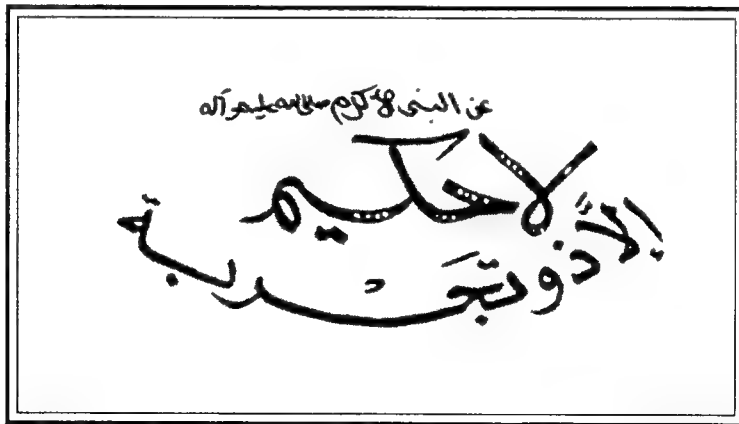 عن النبى الأكرم صلى الله عليه وآله
لا حكيم
إلاَّ ذو تجَرْبة